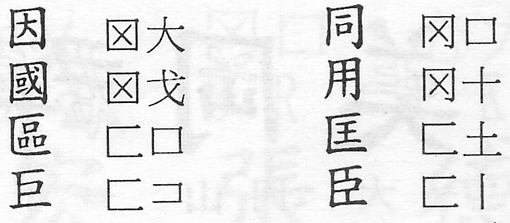 因 囗大 同 冂口
國 囗戈 用 冂十
區 匚口 匡 匚土
巨 匚コ 臣 匚丨